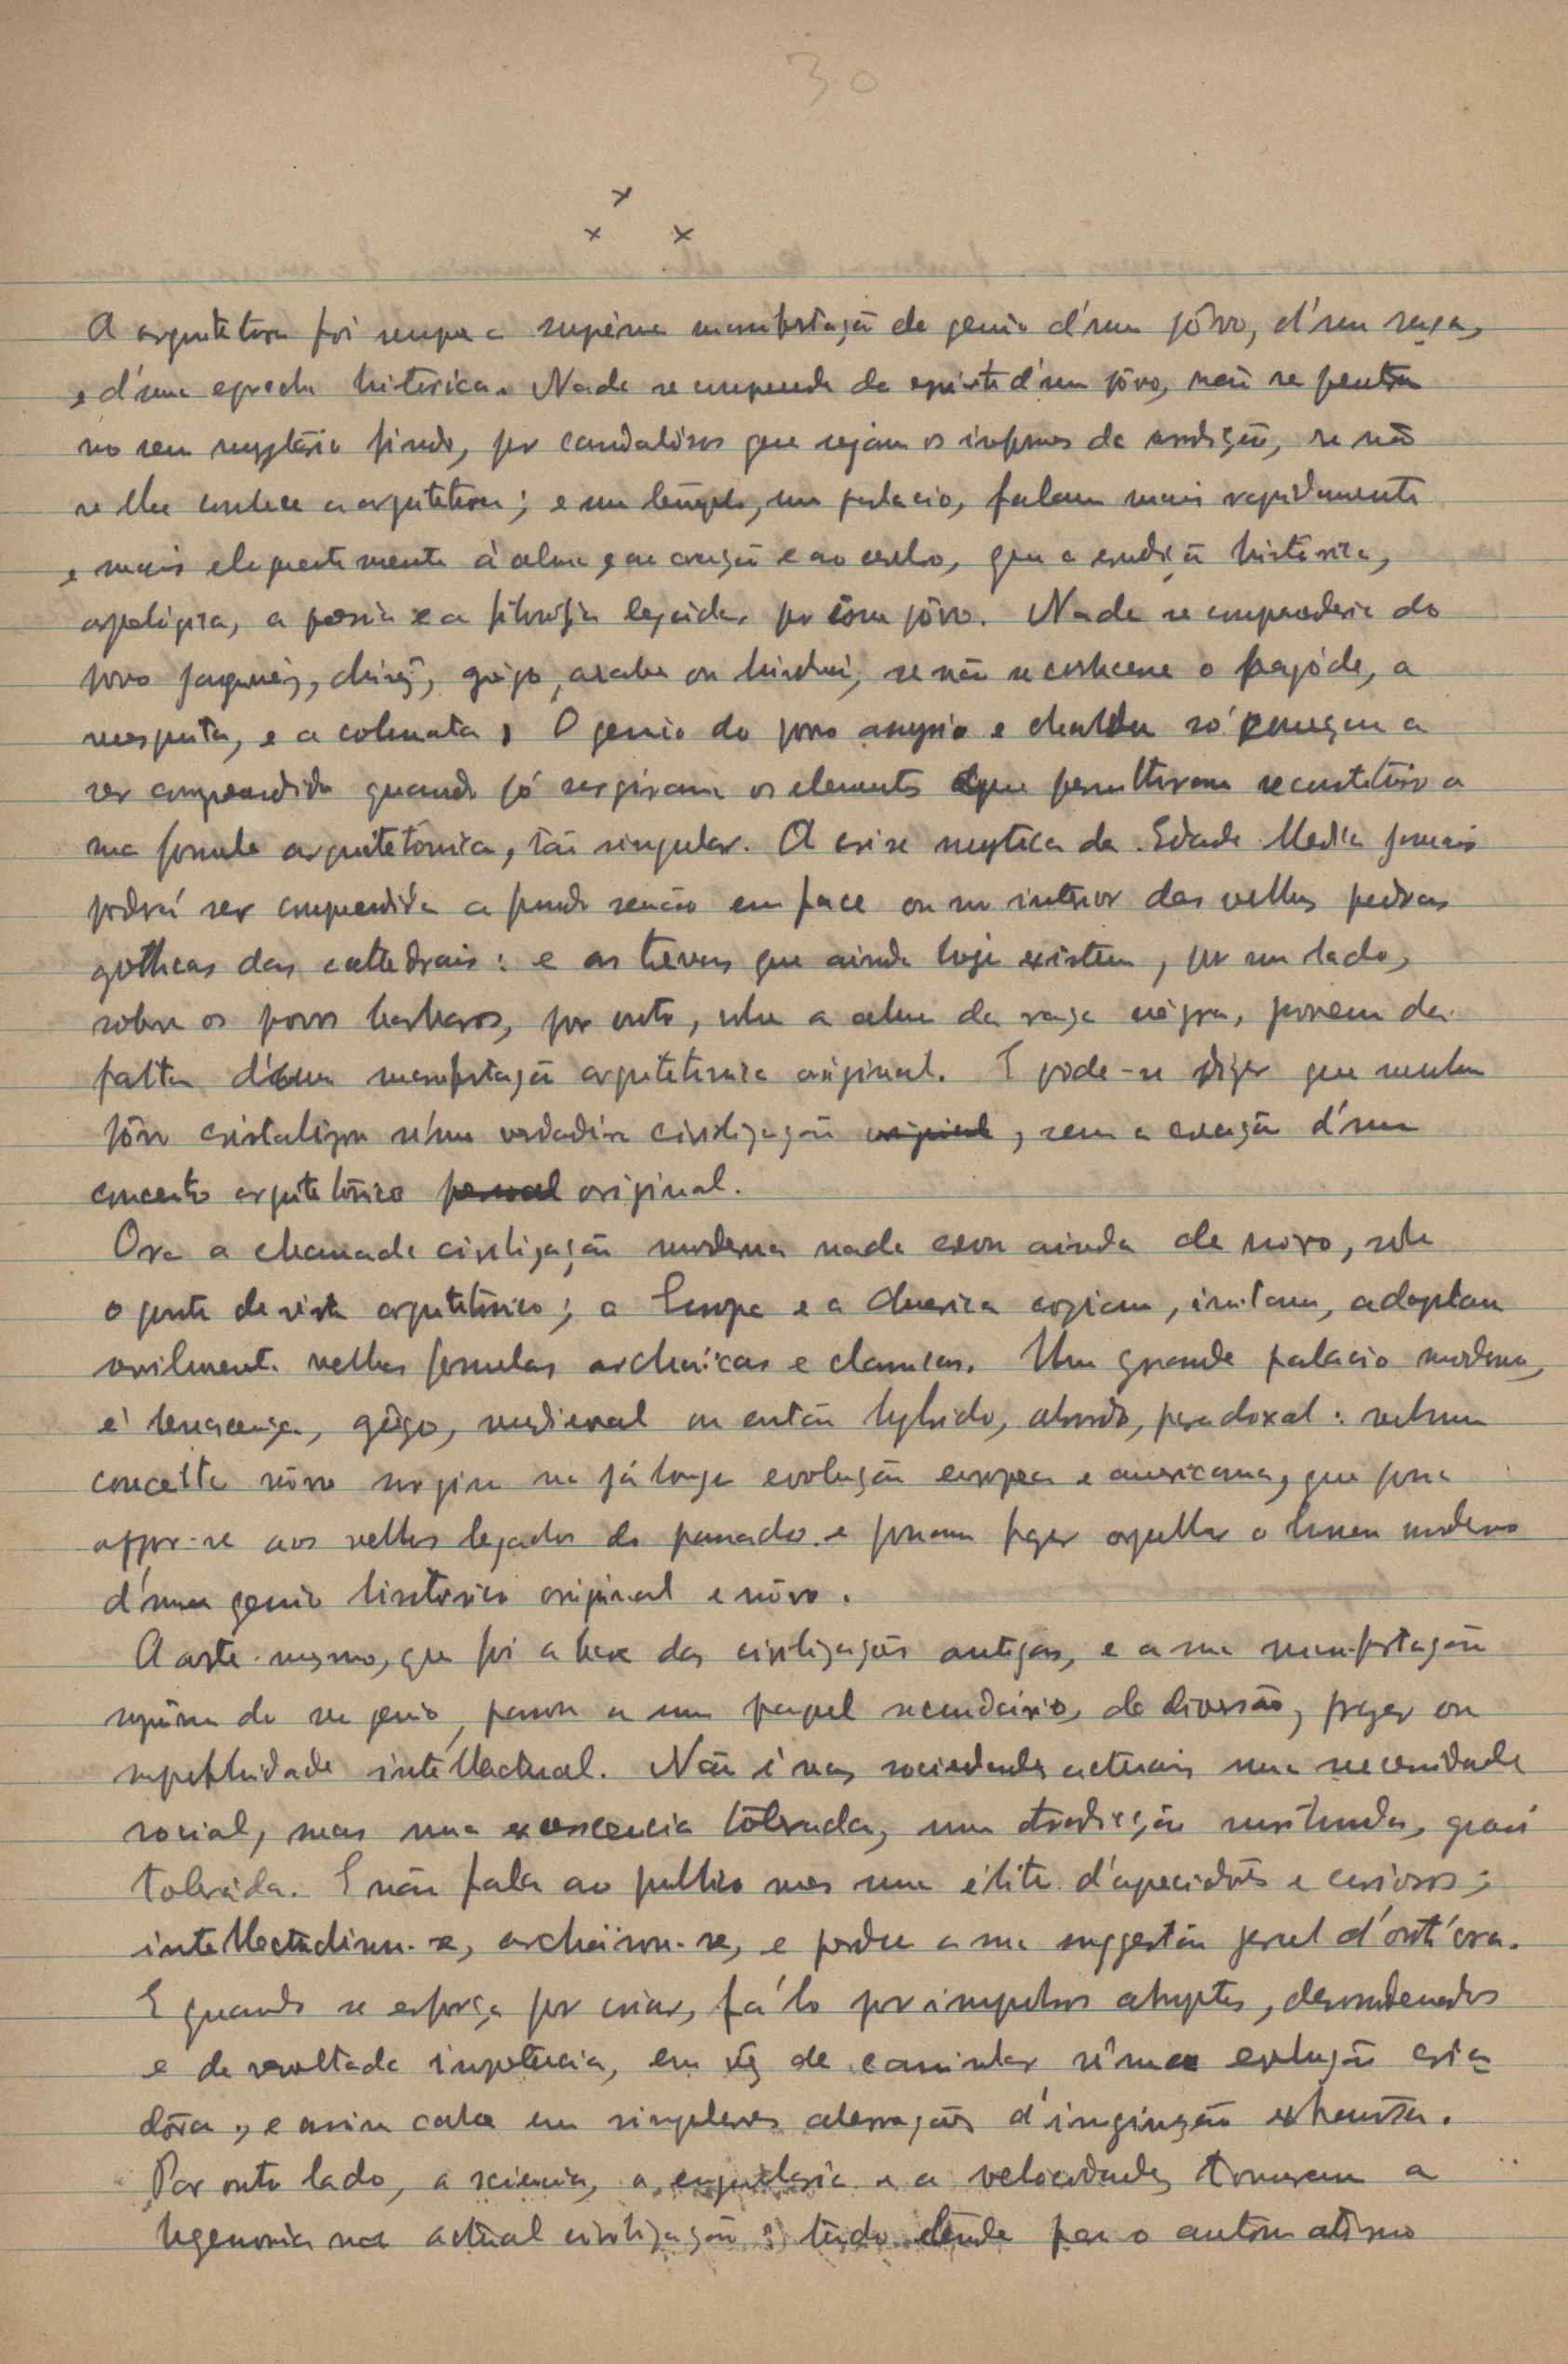 30
x
x x
A arquitetura foi sempre a suprema manifestação do genio d'um pôvo, d'uma raça,
e d'uma epocha historica. Nada se comprende do espirito d'um pôvo, não se penetra
no seu mystério findo, por caudalósos que sejam os informes da erudição, se não
se lhe conhece a arquitetura; e um templo, um palacio, falam mais rapidamente
e mais eloquentemente á alma, ao coração e ao cerebro, que a erudição historica,
arqueologica, a poesia e a filosofia legadas por êsse pôvo. Nada se comprenderia do
povo japonêz, chinêz, grêgo, arabe ou hindú, se não se conhecesse o pagóde, a
mesquita, e a colunata; O genio do povo assyrio e chaldeu só começou a
ser comprendido quando já surgiram os elementos que permittiram reconstituir a
sua formula arquitetónica, tão singular. A crise mystica da Edade Media jamais
podrá ser comprendida a fundo senão em face ou no interior das velhas pedras
gothicas das cathedrais: e as trevas que ainda hoje existem, por um lado,
sobre os povos barbaros, por outro, sobre a alma da raça négra, provem da
falta d'uma manifestação arquitetonica original. E póde-se dizer que nenhum
pôvo cristalizou n'uma verdadeira civilização original, sem a creação d'um
conceito arquitetónico pessoal original.
Ora a chamada civilização moderna nada creou ainda de novo, sob
o ponto de vista arquitetónico; a Europa e a America copiam, imitam, adaptam
servilmente velhas formulas archaicas e classicas. Um grande palacio moderno,
é renascença, grêgo, medieval ou então hybrido, absurdo, paradoxal: nenhum
conceito nôvo surgiu na já longa evolução europea e americana, que possa
oppôr-se aos velhos legados do passado e possam fazer orgulhar o homem moderno
d'um genio historico original e nôvo.
A arte mesmo, que foi a base das civilizações antigas, e a sua manifestação
suprema do seu genio, passou a um papel secundário, de diversão, prazer ou
superfluidade intellectual. Não é nas sociedades actuais uma necessidade
social, mas uma excrescencia tolerada, uma tradicção mantida, quasi
tolerada. E não fala ao publico mas uma élite d'apreciadôres e curiosos;
intellectualisou-se, archaïsou-se, e perdeu a sua suggestão geral d'outr'ora.
E quando se esforça por criar, fá'lo por impulsos abruptos, desordenados
e de revoltada impotencia, em vêz de caminhar n'uma evolução cria-
dôra, e assim cahe em singulares aberrações d'imaginação exhausta.
Por outro lado, a sciencia, a engenharia e a velocidade, tomaram a
hegemonia na actual civilização: tudo tende para o automatismo